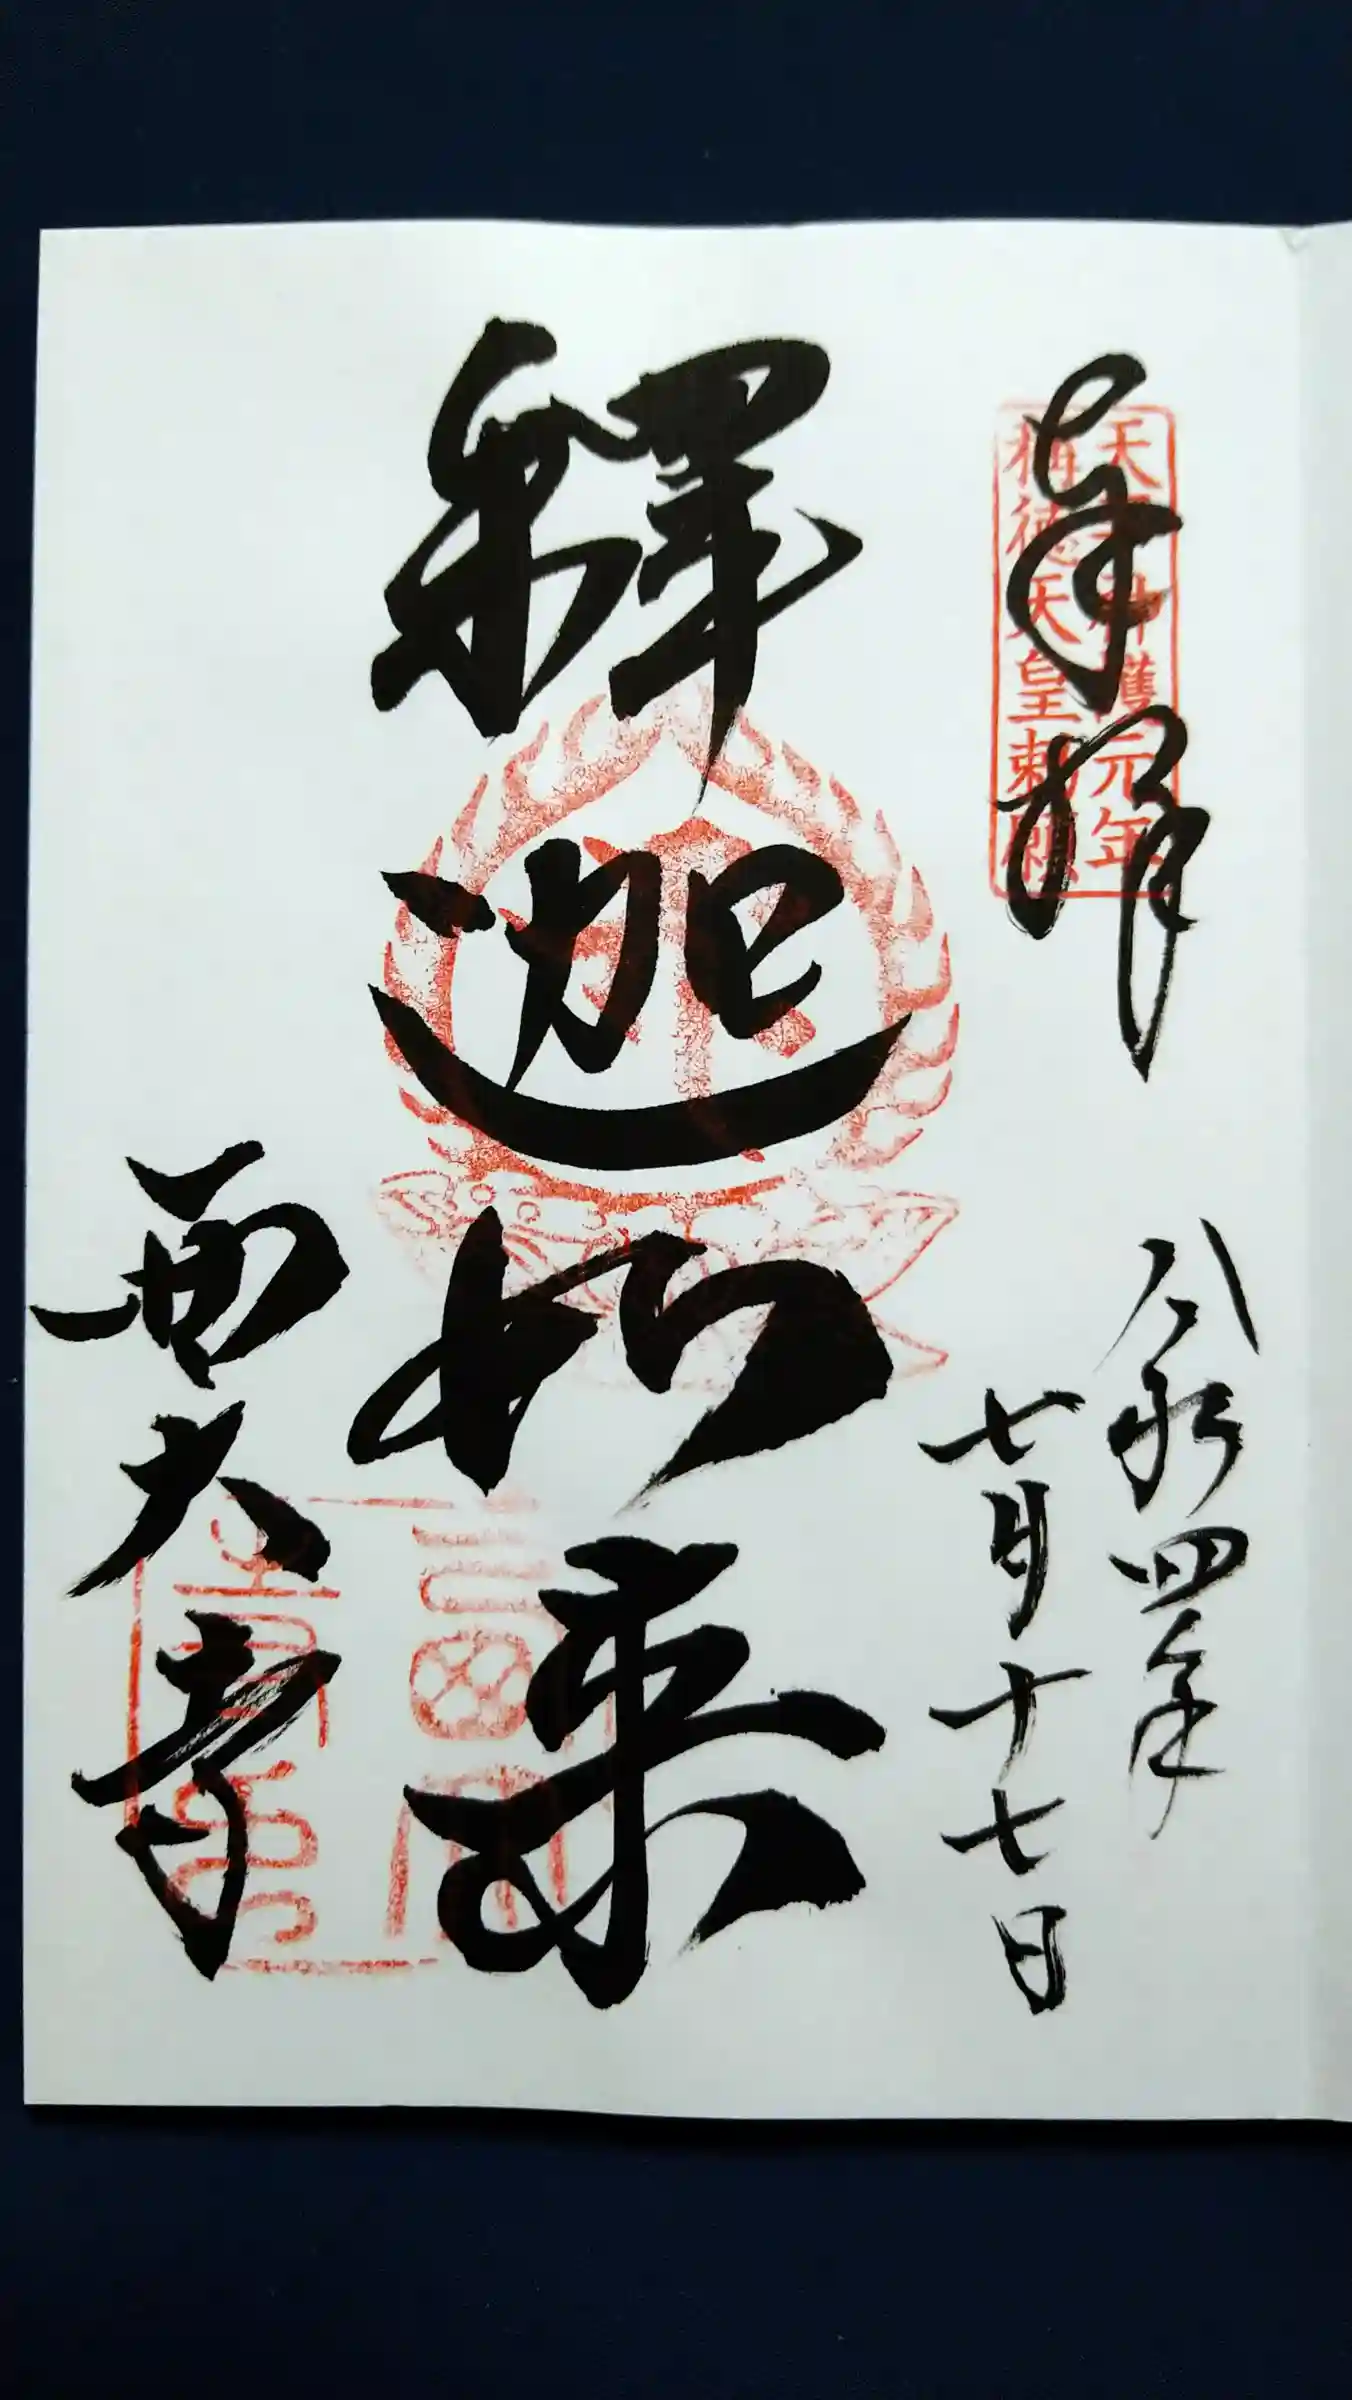 奉拝
天平神護元年
稱徳天皇勅願
令和四年
七月十七日
釋迦如来
西大寺